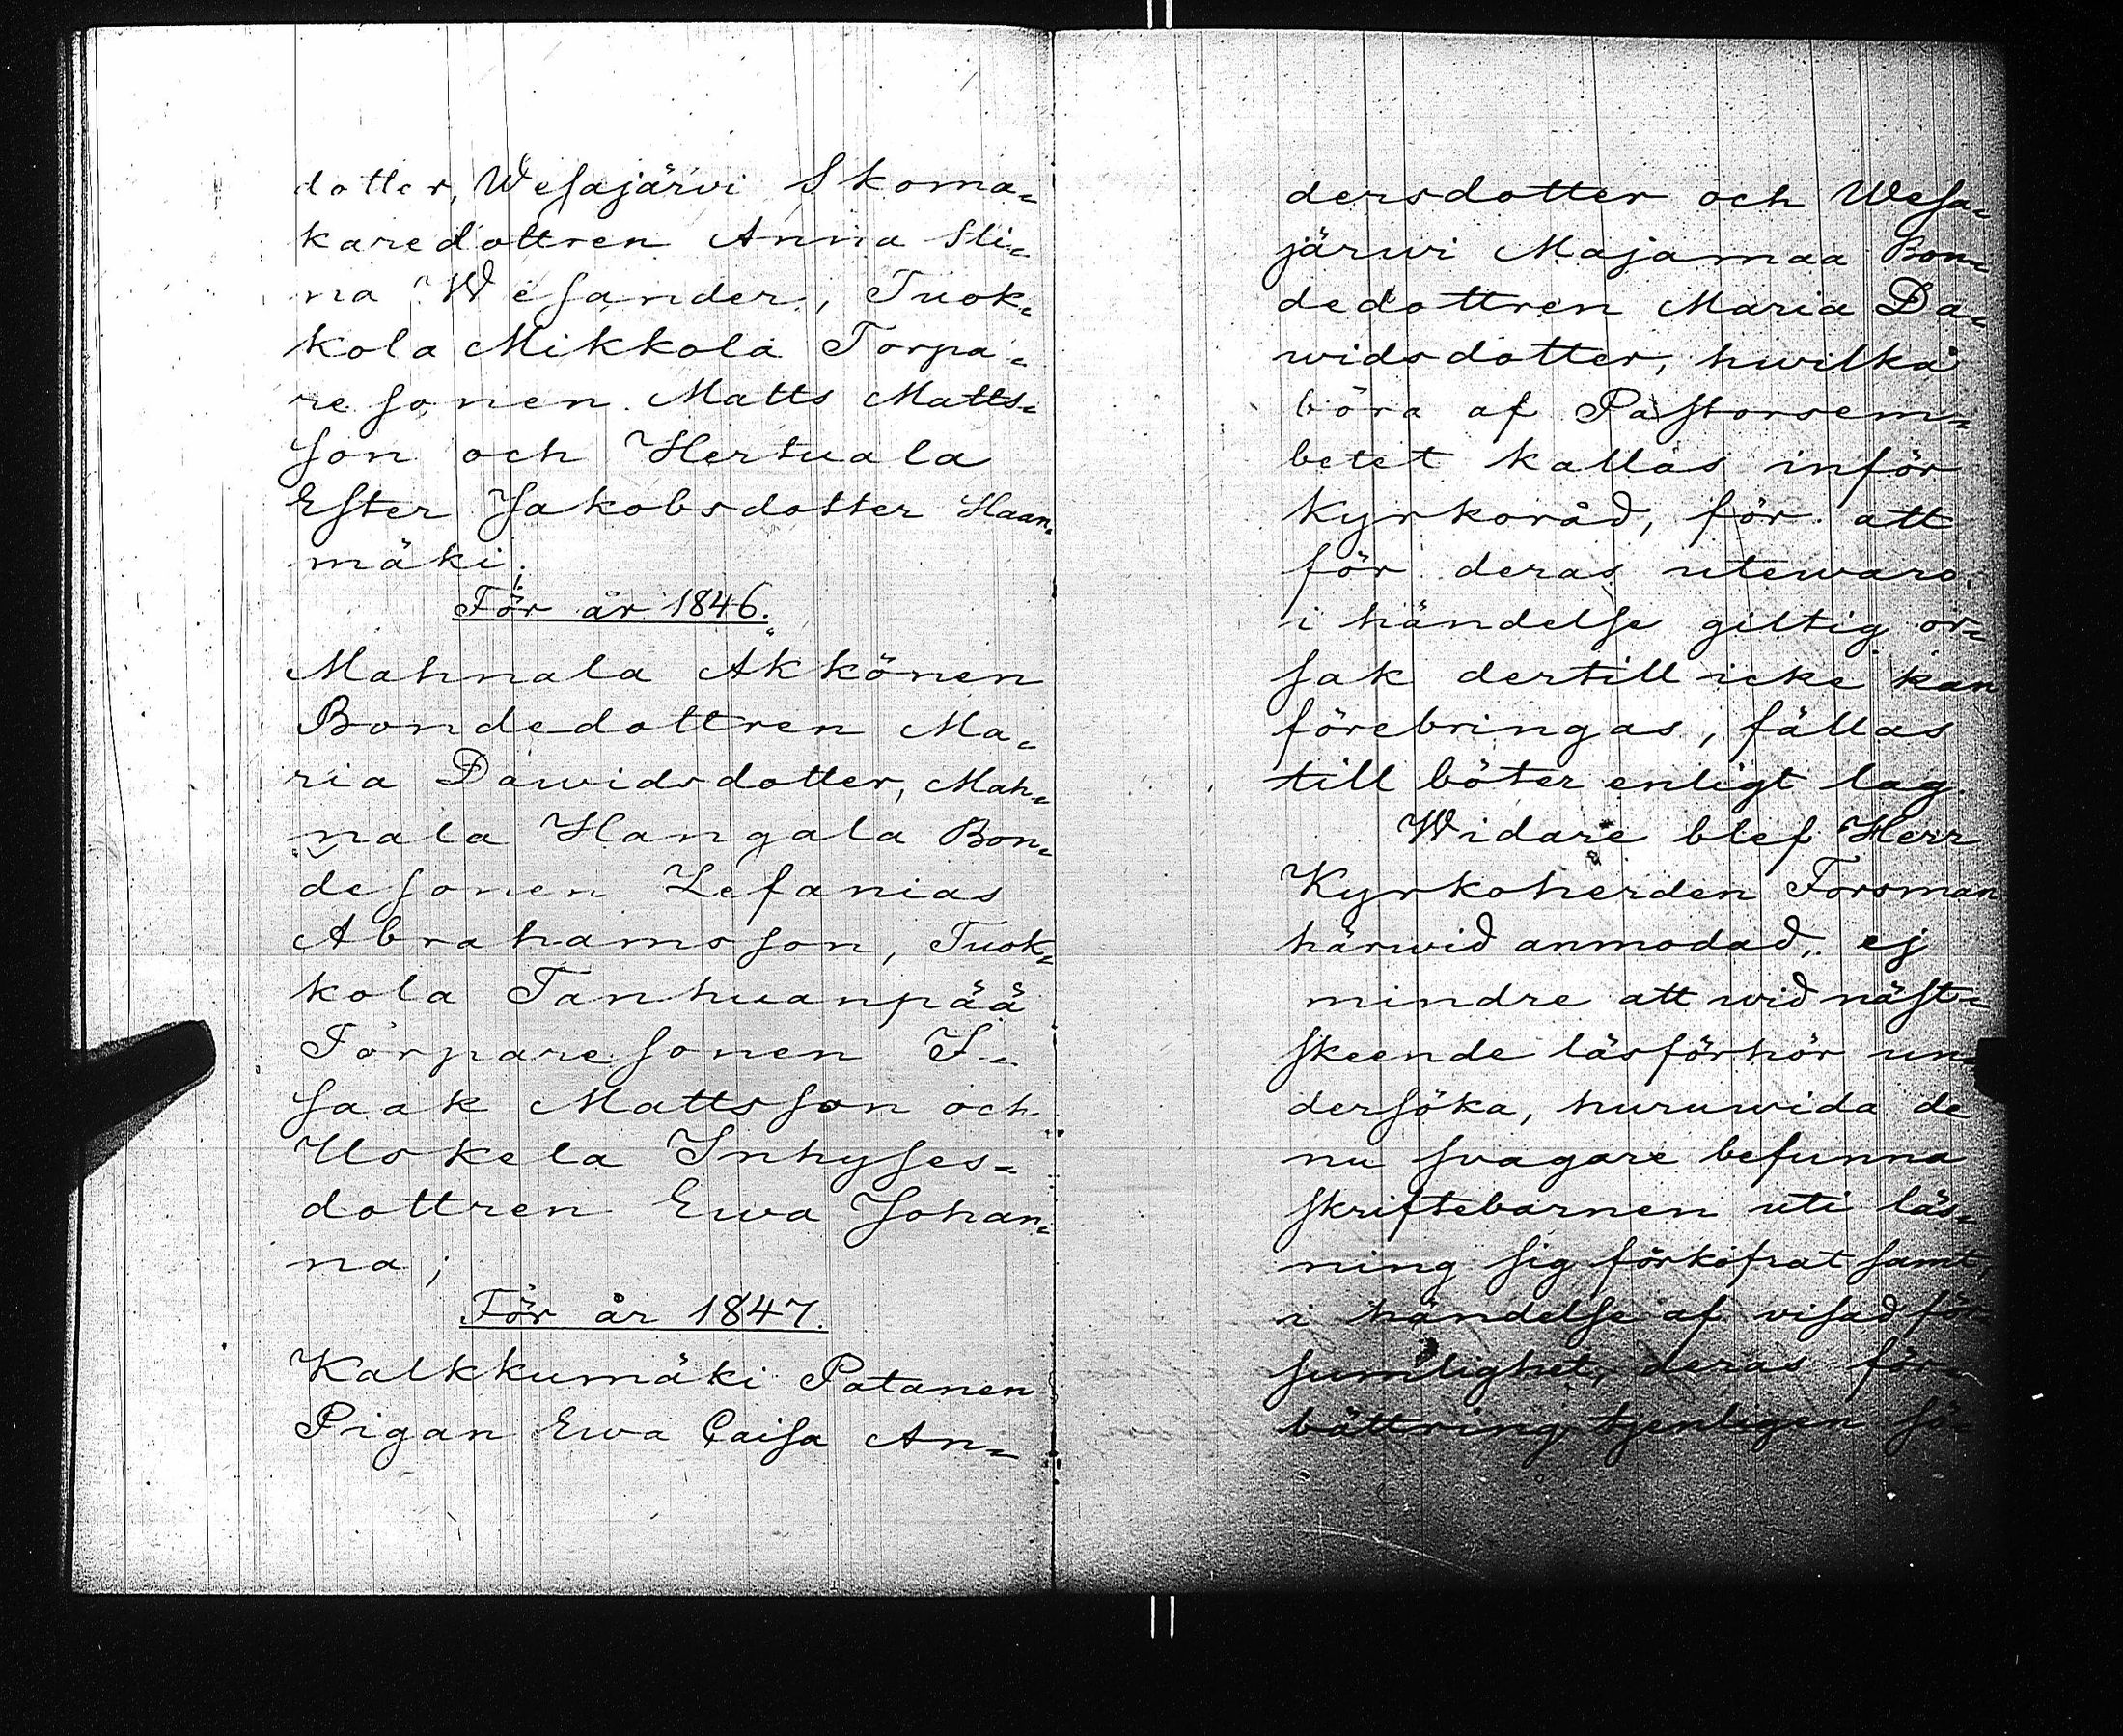 dotter, Wesajärwi Skoma=
karedottren Anna Sti=
na Wesander, Tuok=
kola Mikkola Torpa=
resonen Matts Matts=
son och Hertuala
Ester Jakobsdotter Haan=
mäki;
För år 1846.
Mahnala Akkönen
Bondedottren Ma=
ria Dawidsdotter, Mah=
nala Hangala Bon=
desonen Zefanias
Abrahamsson, Tuok=
kola Tanhuanpää
Torparesonen I=
saak Mattsson och
Uskela Inhyses=
dottren Ewa Johan=
na;
För år 1847.
Kalkkumäki Patanen
Pigan Ewa Caisa An=
dersdotter och Wesa=
järwi Majamaa Bon=
dedottren Maria Da=
widsdotter, hwilka
böra af Pastorsem=
betet kallas inför
Kyrkoråd, för att
för deras utewaro
i händelse giltig or=
sak dertill icke kan
förebringas, fällas
till böter enligt lag.
Widare blef Herr
Kyrkoherden Forsman
härwid anmodad, ej
mindre att wid näst=
skeende läsförhör un=
dersöka, huruwida de
nu svagare befunna
skriftebarnen uti läs=
ning sig förkofrat samt,
i händelse af visad för=
sumlighet, deras för=
bättring tjenligen sö=